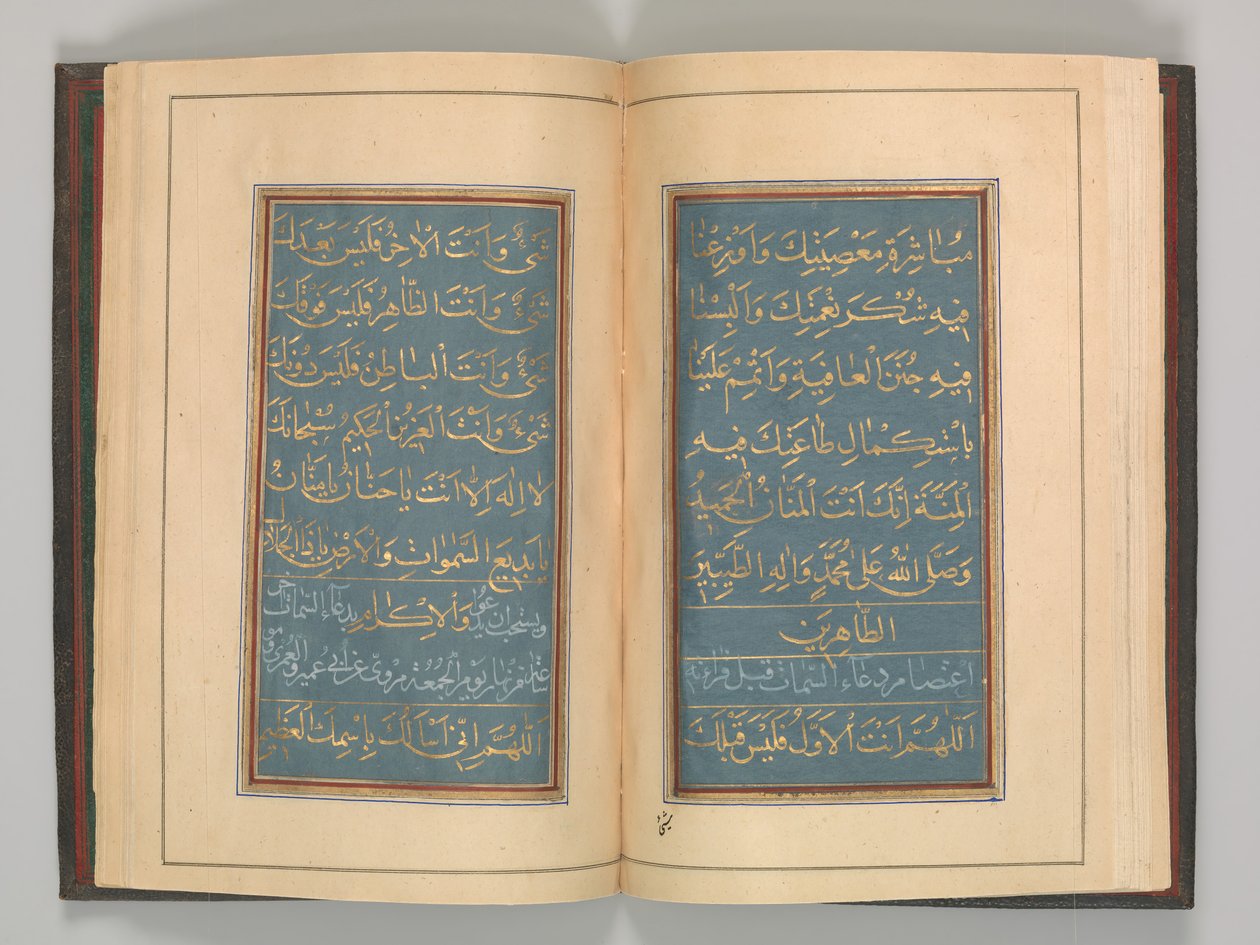 مُبَاشِرَةِ مَعْصِيَتِكَ وَاَوْزِعْنَا
فِيهِ شُكْرَ نِعْمَتِكَ وَاَلْبِسْنَا
فِيهِ جُنَنَ الْعَافِيَةِ وَاَتْمِمْ عَلَيْنَا
بِاسْتِكْمَالِ طَاعَتِكَ فِيهِ
الْمِنَّةَ اِنَّكَ اَنْتَ الْمَنَّانُ الْحَمِيدُ
وَصَلَّى اللّٰهُ عَلٰى مُحَمَّدٍ وَاٰلِهِ الطَّيِّبِينَ
الطَّاهِرِينَ
اعتصام دعاء السمات قبل قرائته
اَللّٰهُمَّ اَنْتَ الْاَوَّلُ فَلَيْسَ قَبْلَكَ
شئ
شَیْءٌ وَاَنْتَ الْاٰخِرُ فَلَيْسَ بَعْدَكَ
شَیْءٌ وَاَنْتَ الظَّاهِرُ فَلَيْسَ فَوْقَكَ
شَیْءٌ وَاَنْتَ الْبَاطِنُ فَلَيْسَ دُونَكَ
شَیْءٌ وَاَنْتَ الْعَزِيزُ الْحَكِيمُ سُبْحَانَكَ
لَا اِلٰهَ اِلَّا اَنْتَ يَا حَنَّانُ يَا مَنَّانُ
يَا بَدِيعَ السَّمٰوَاتِ وَالْاَرْضِ يَا ذَا الْجَلَالِ
وَالْاِكْرَامِ ويستحب ان يدعوا بدعاء السمات اخر
ساعة من نهار يوم الجمعة مروی عن ابی عمرو العمری
اَللّٰهُمَّ اِنِّی اَسْاَلُكَ بِاسْمِكَ الْعَظِيمِ